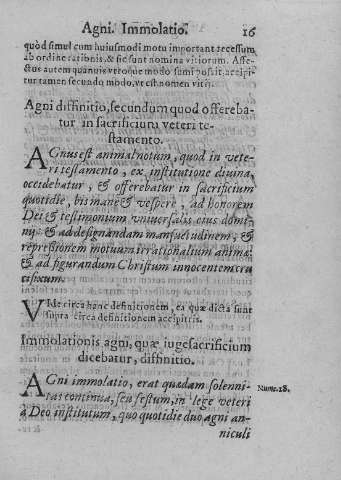 Agni. Immolatio. 16
quòd simul cum huiusmodi motu important recessum
ab ordine rationis. & sic sunt nomina vitiorum. Affe-
ctus autem quanuis vtroque modo sumi possit, accipi-
tur tamen secundo modo, vt est nomen vitij.
Agni diffinitio, secundum quod offereba-
tur in sacrificium veteri te-
stamento.
AGnus est animal notum, quod in vete-
ri testamento, ex institutione diuina,
occidebatur, & offerebatur in sacrificium
quotidie, bis mane & vespere, ad honorem
Dei & testimonium vniuersalis eius domi-
nij & ad designandam mansuetudinem, &
repressionem motuum irrationalium animæ:
& ad figurandum Christum innocentem cru
cifixum.
VIde circa hanc definitionem, ea quæ dicta sunt
supra circa definitionem accipitris.
Immolationis agni, quæ iuge sacrificium
dicebatur, diffinitio.
AGni immolatio, erat quædam solenni- Nume. 28.
tas continua, seu festum, in lege veteri
a Deo institutum, quo quotidie duo agni an-
niculi